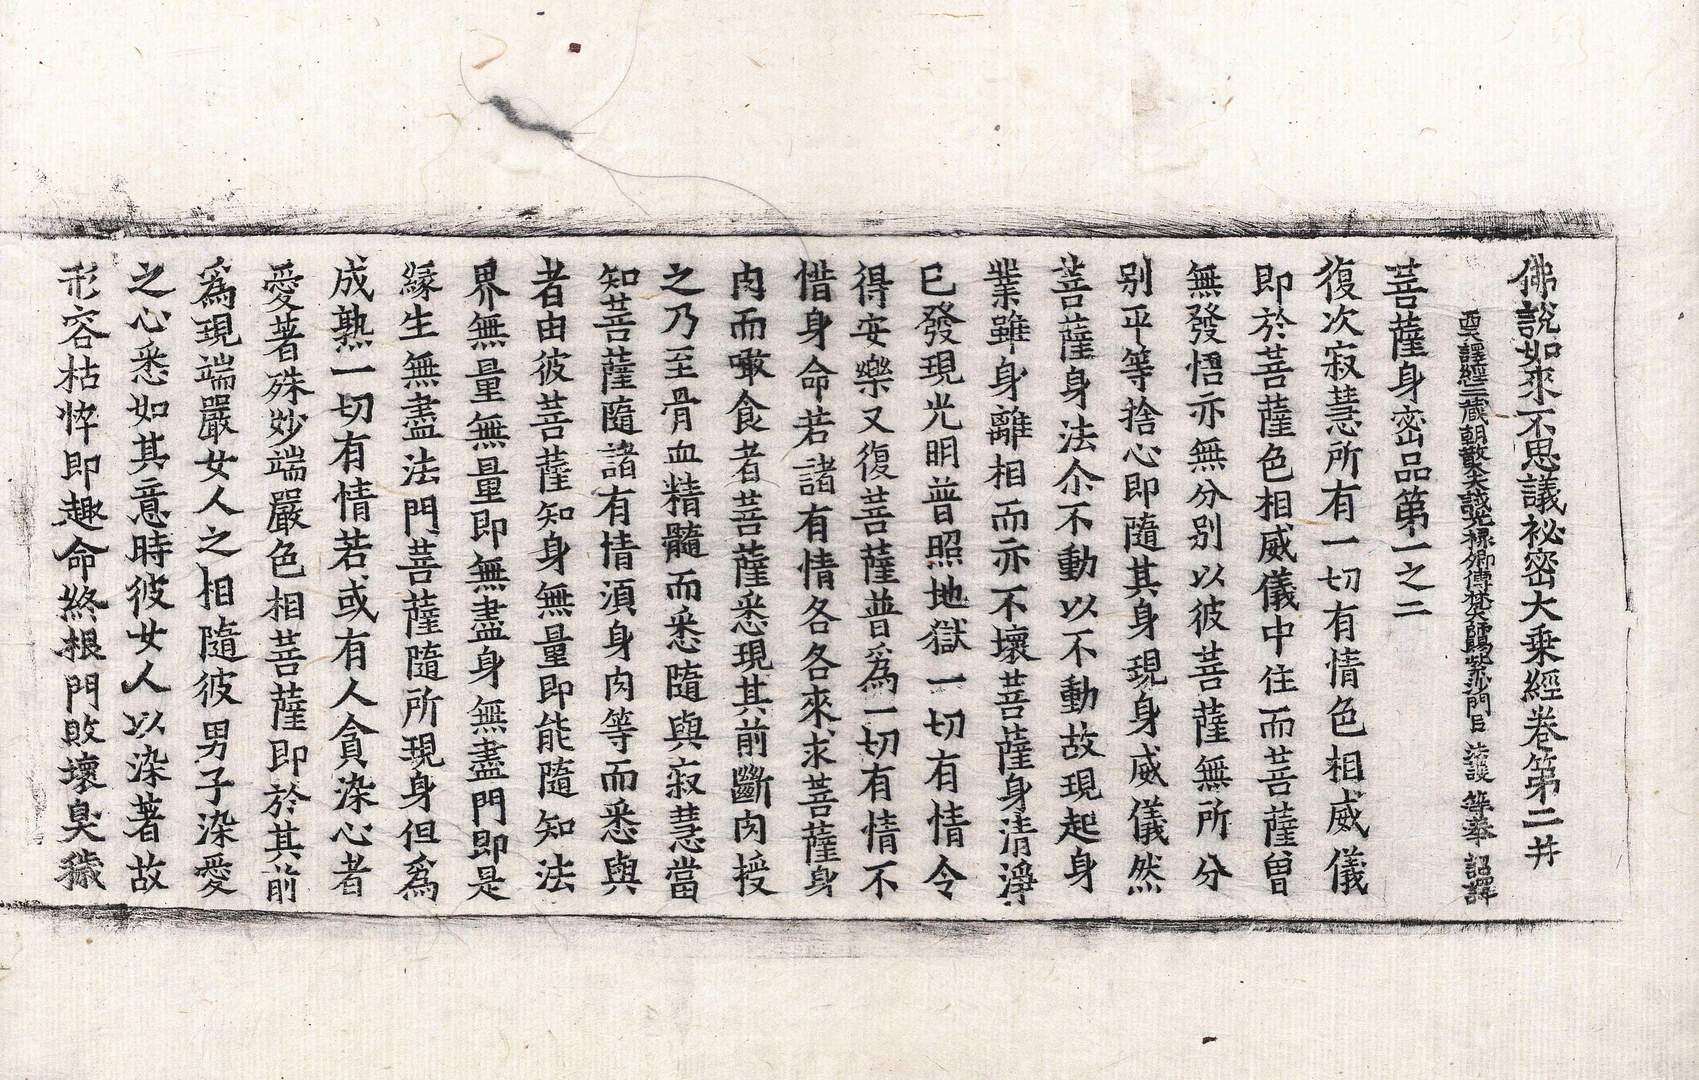 佛說如來不思議祕密大乗經卷第二井
西天譯經三藏朝散大夫試光祿卿傳梵大師賜紫沙門臣法護等奉 詔譯
菩薩身密品第一之二
復次寂慧所有一切有情色相威儀
即於菩薩色相威儀中住而菩薩曽
無發悟亦無分别以彼菩薩無所分
别平等捨心即隨其身現身威儀然
菩薩身法尒不動以不動故現起身
業雖身離相而亦不壞菩薩身清淨
已發現光明普照地獄一切有情令
得安樂又復菩薩普爲一切有情不
惜身命若諸有情各各來求菩薩身
肉而噉食者菩薩悉現其前斷肉授
之乃至骨血精髓而悉隨與寂慧當
知菩薩隨諸有情湏身肉等而悉與
者由彼菩薩知身無量即能隨知法
界無量無量即無盡身無盡門即是
緣生無盡法門菩薩隨所現身但爲
成熟一切有情若或有人貪染心者
愛著殊妙端嚴色相菩薩即於其前
爲現端嚴女人之相隨彼男子染愛
之心悉如其意時彼女人以染著故
形容枯悴即趣命終根門敗壞臭穢